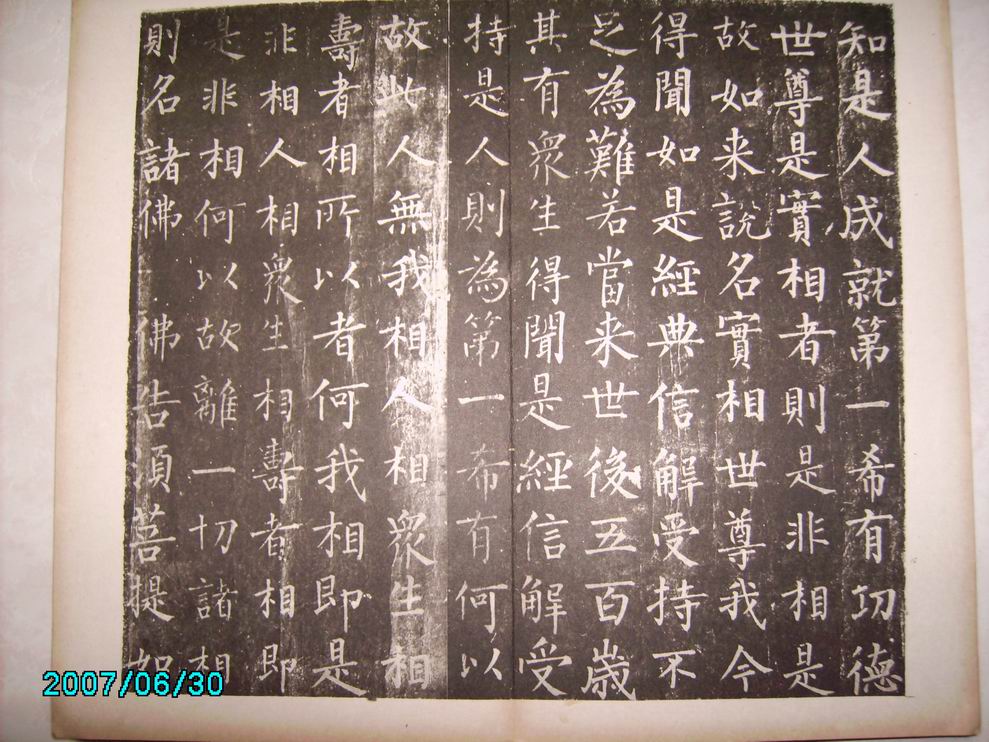 知是人成就第一希有功德
世尊是實相者則是非相是
故如来說名實相世尊我今
得聞如是經典信解受持不
足為難若當来世後五百歲
其有衆生得聞是經信解受
持是人則為第一希有何以
故此人無我相人相衆生相
壽者相所以者何我相即是
非相人相衆生相壽者相即
是非相何以故離一切諸相
則名諸佛 佛告須菩提如
2007/06/30